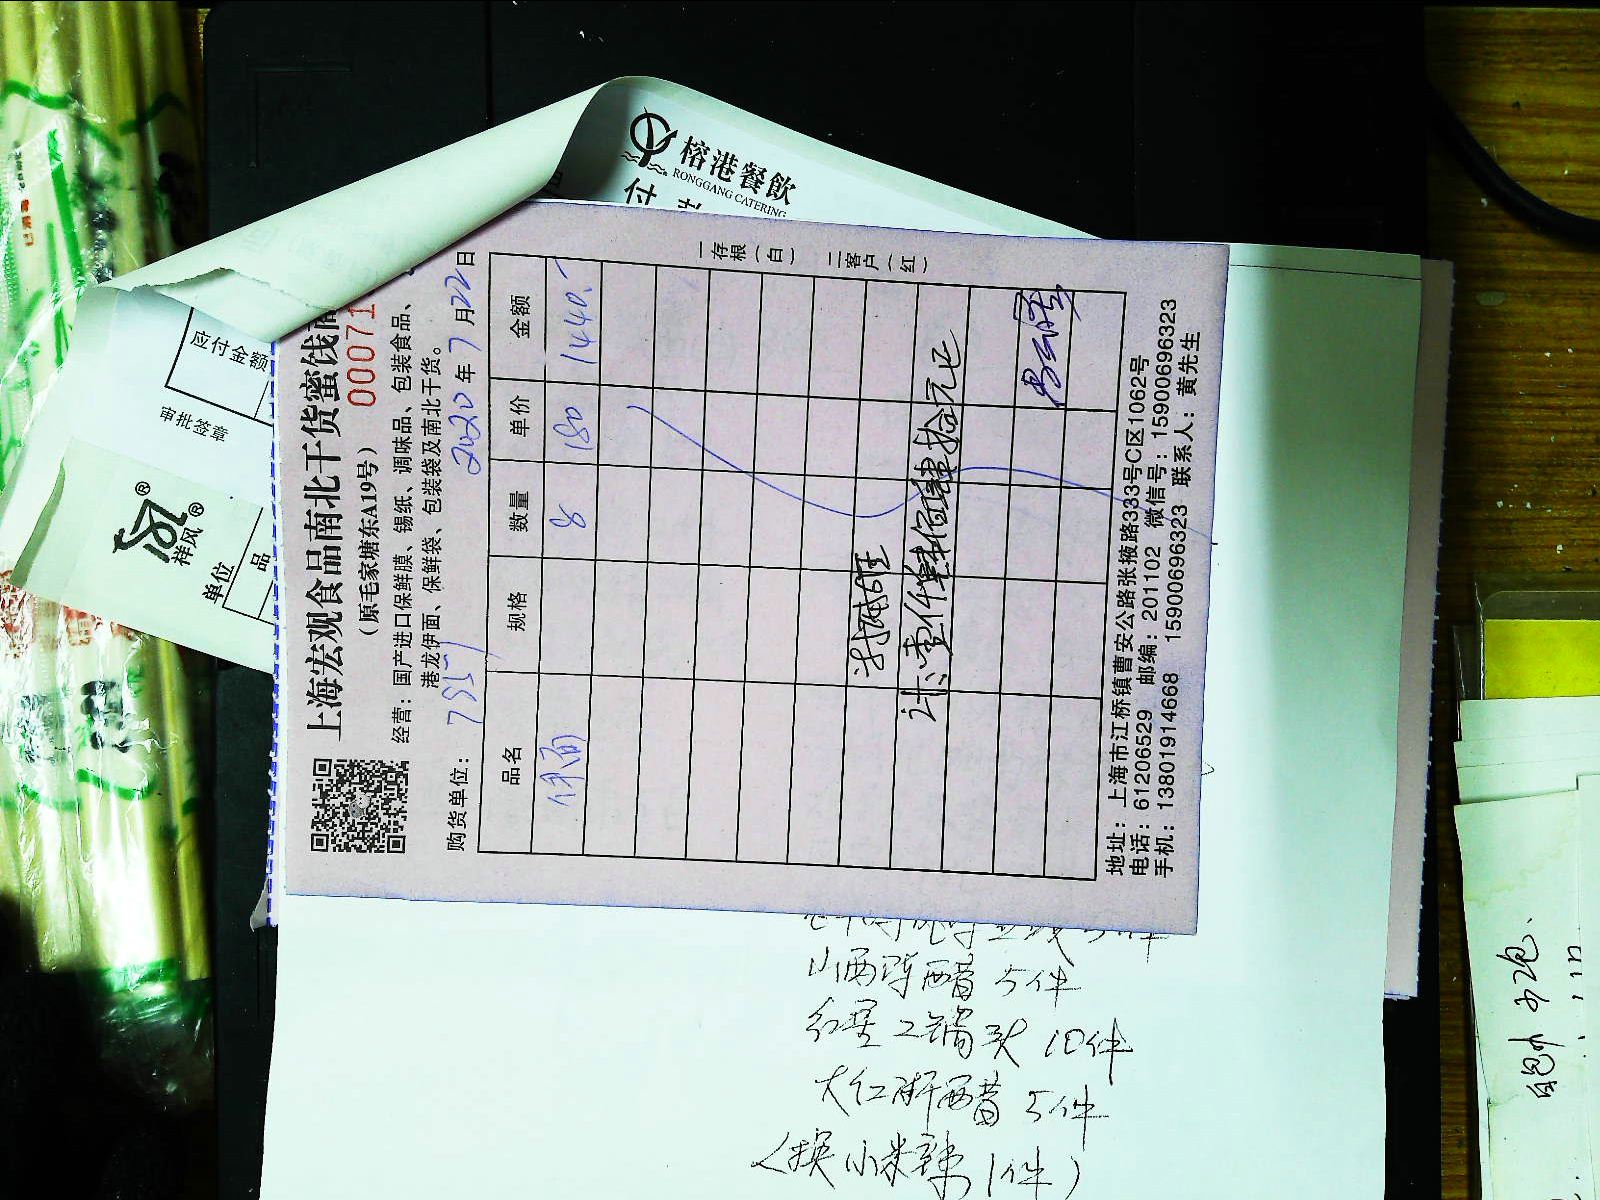 上海宏观食品南北干货蜜饯商
(原毛家塘东A19号)
00071
经营：国产进口保鲜膜、锡纸、调味品、包装食品、
港龙伊面、保鲜袋、包装袋及南北干货。
购货单位： 2020年7月22日
品名 规格 数量 单价 金额
伊面 8 180 1440.-
计:壹仟肆佰肆拾元正
一存根(白) 二客户(红)
地址：上海市江桥镇曹安公路张掖路333号C区1062号
电话：61206529 邮编：201102 微信号：15900696323
手机：13801914668 15900696323 联系人：黄先生
榕港餐飲
RONGGANG CATERING
付
应付金额
审批签章
祥风
单位
品
山西陈醋 5件
红星二锅头 10件
大红浙醋 5件
(换小米辣1件)